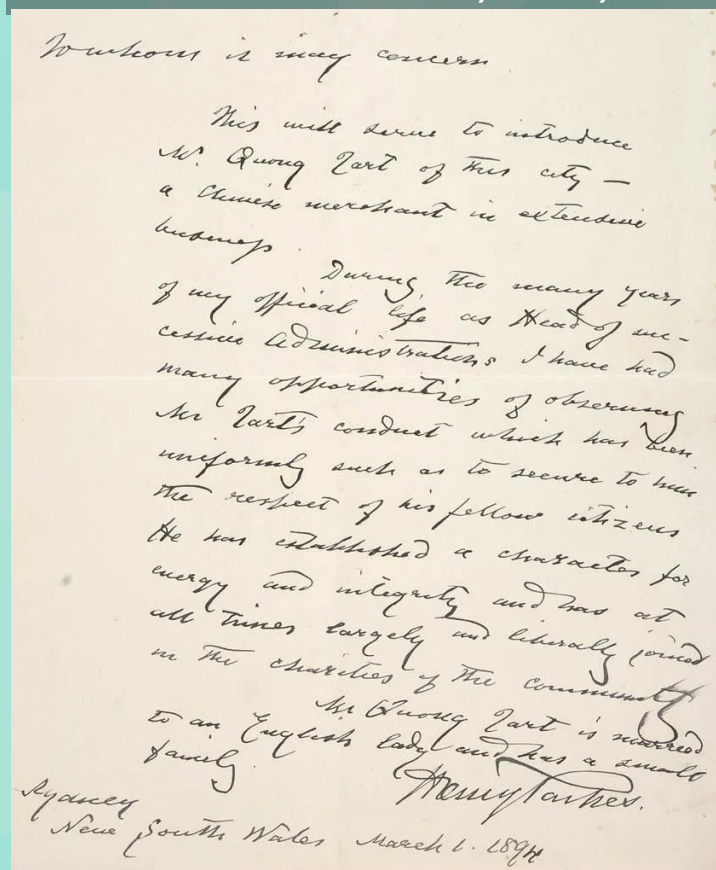 To whom it may concern
This will serve to introduce
Mr. Quong Tart of this city —
a Chinese merchant in extensive
business.
During the many years
of my official life as Head of suc-
cessive Administrations I have had
many opportunities of observing
Mr Tart's conduct which has been
uniformly such as to secure to him
the respect of his fellow citizens
He has established a character for
energy and integrity and has at
all times largely and liberally joined
in the charities of the community
Mr Quong Tart is married
to an English lady and has a small
family.
Henry Parkes.
Sydney
New South Wales March 1. 1894